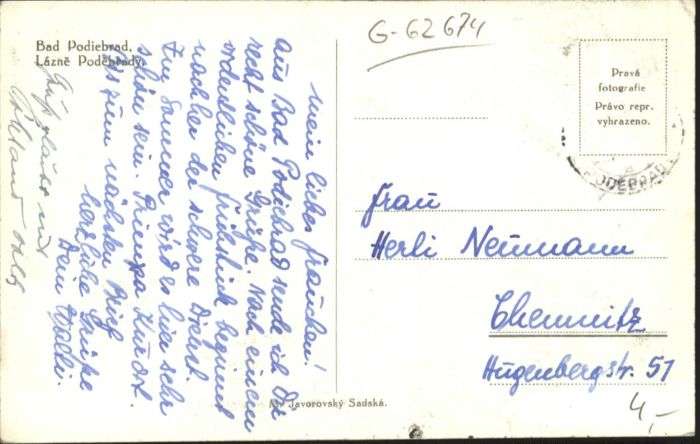 G-62674
Bad Podiebrad.
Lázně Poděbrady.
Pravá
fotografie
Právo repr.
vyhrazeno.
PODĚBRADY
Mein liebes Frauchen!
Aus Bad Podiebrad sende ich Dir
recht schöne Grüße. Nach einem
ordentlichen Frühstück beginnt
nachher der schwere Dienst.
Im Sommer wird es hier sehr
schön sein. Prima Kurort.
Bis zum nächsten Brief
herzliche Grüße
Dein Walli.
Frau
Herli Neumann
Chemnitz
Hugenbergstr. 51
4,-
Javorovský Sadská.